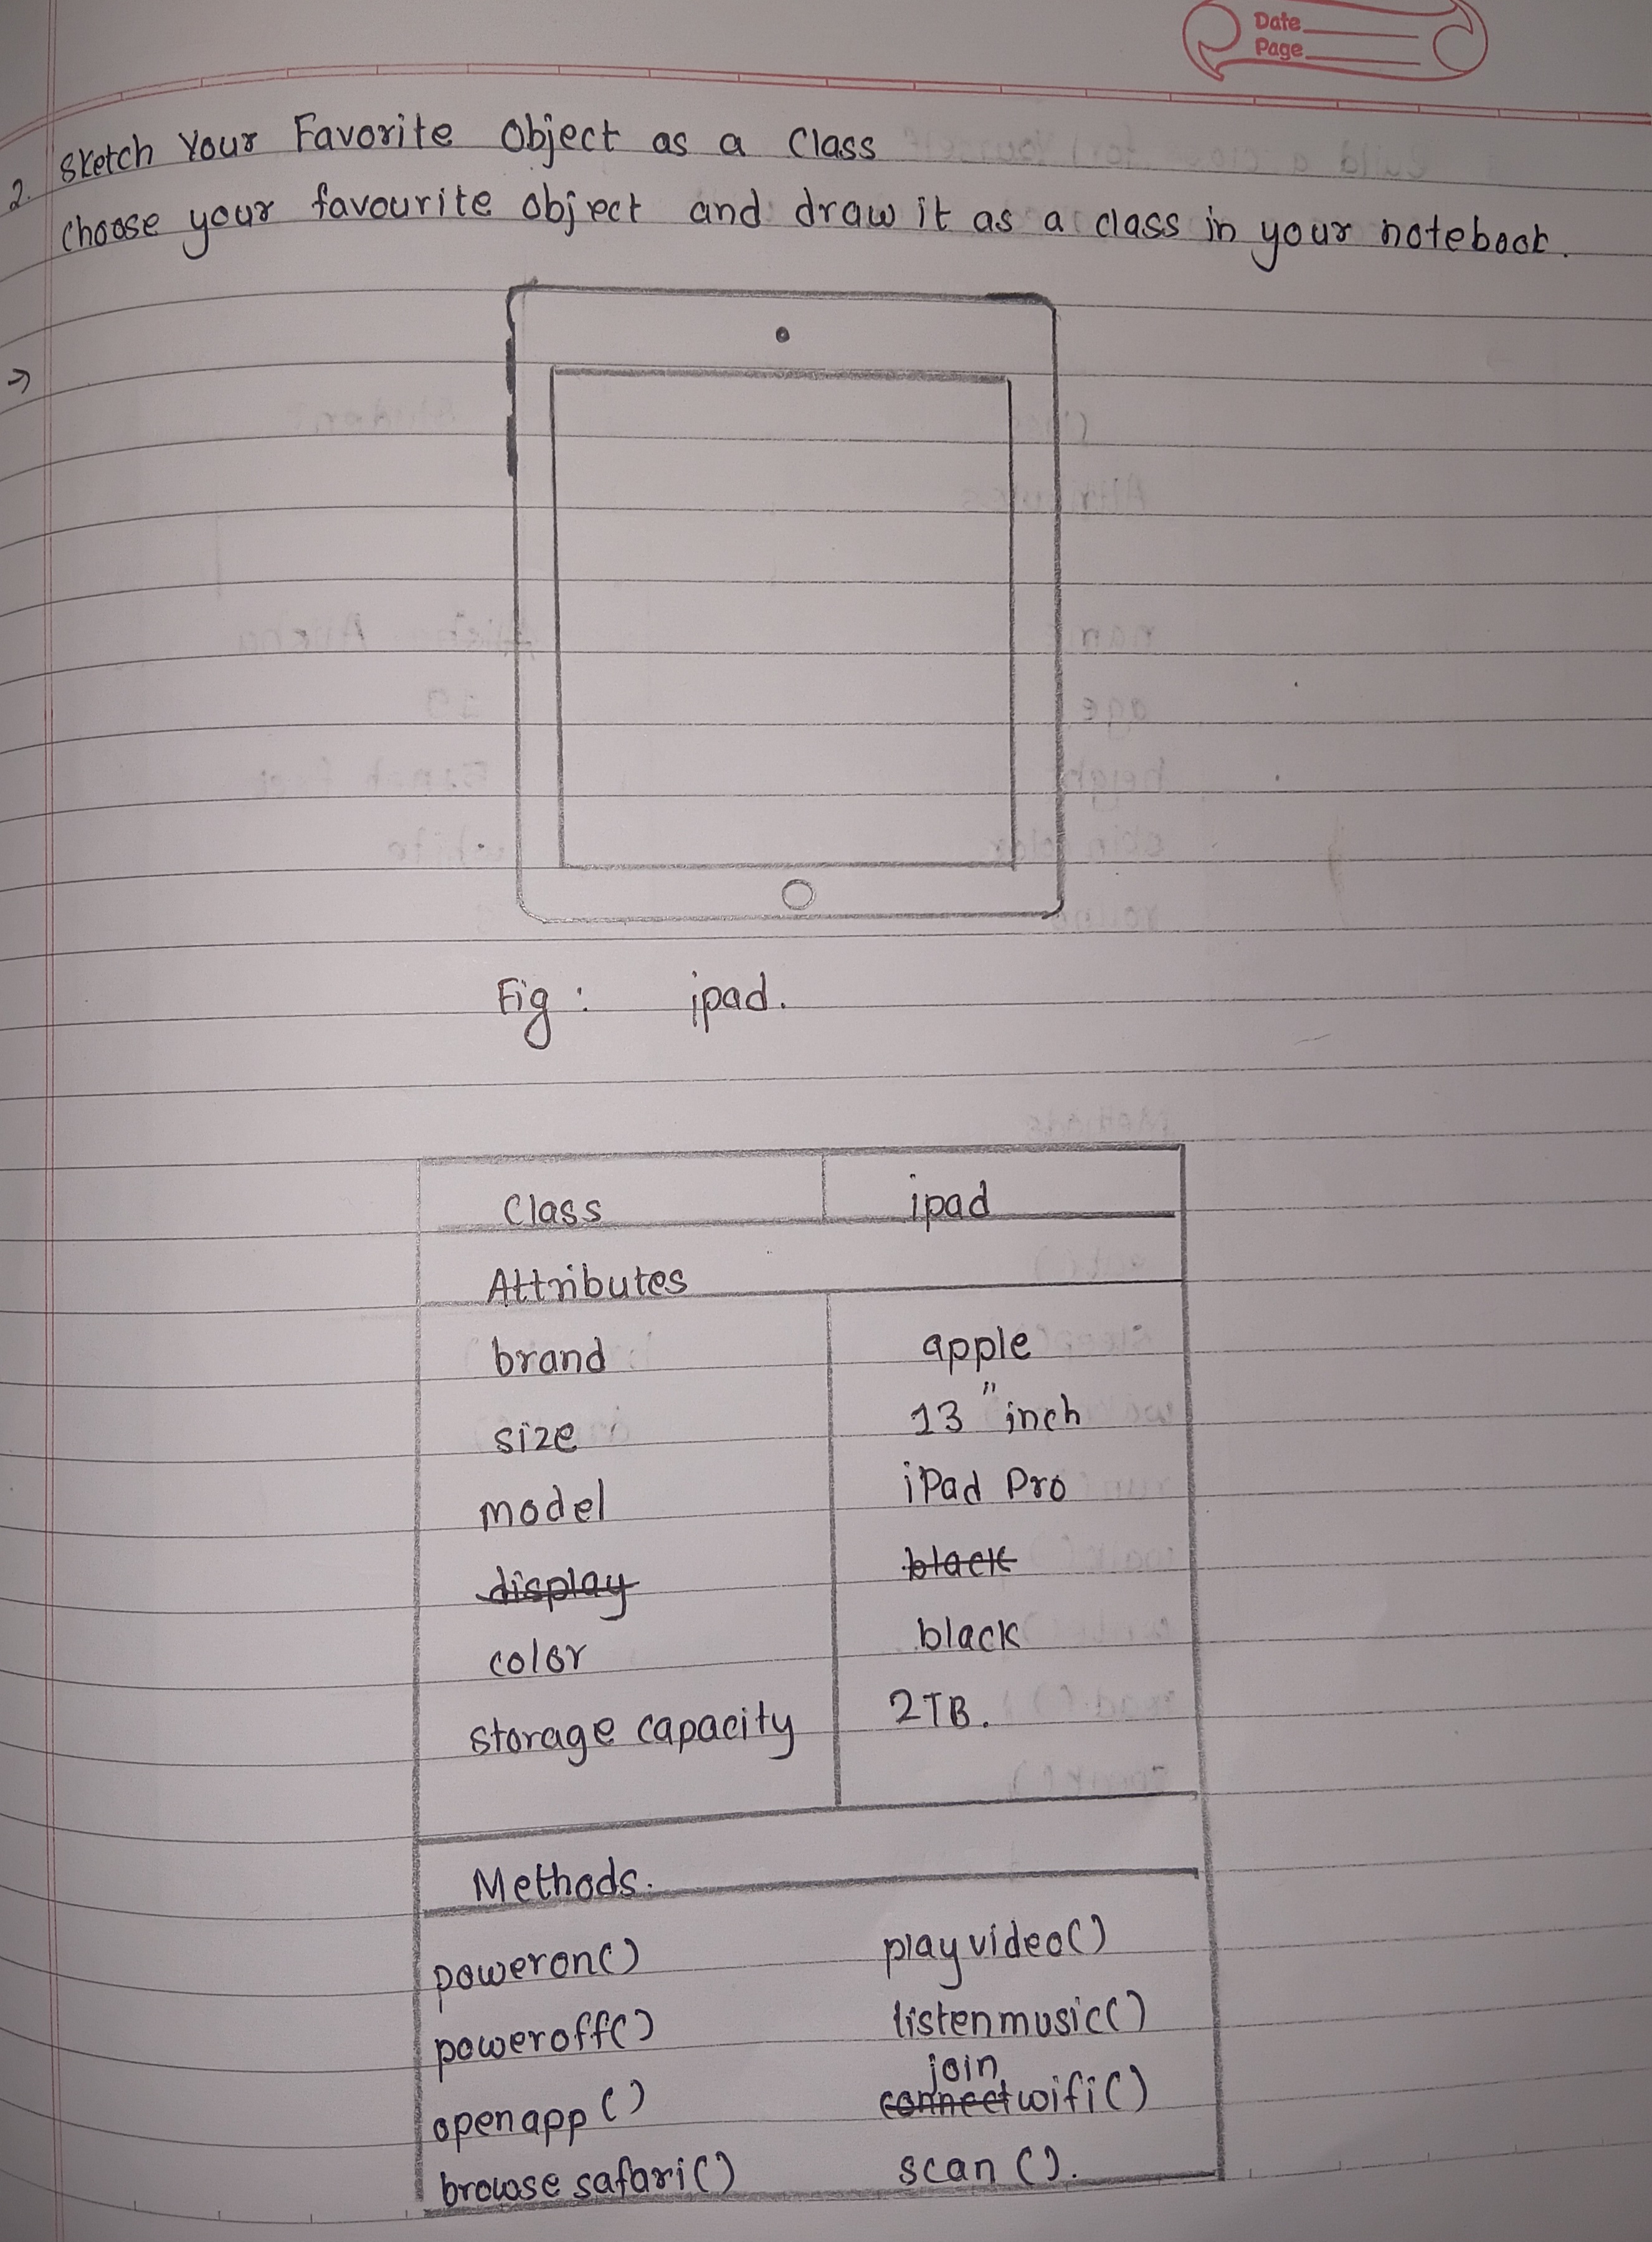 Date
Page
2. Sketch Your Favorite Object as a Class
choose your favourite object and draw it as a class in your notebook.
→
Fig : ipad.
Class ipad
Attributes
brand apple
size 13" inch
model iPad Pro
display black
color black
storage capacity 2TB.
Methods.
poweron() playvideo()
poweroff() listenmusic()
join
openapp() connectwifi()
browse safari() scan().